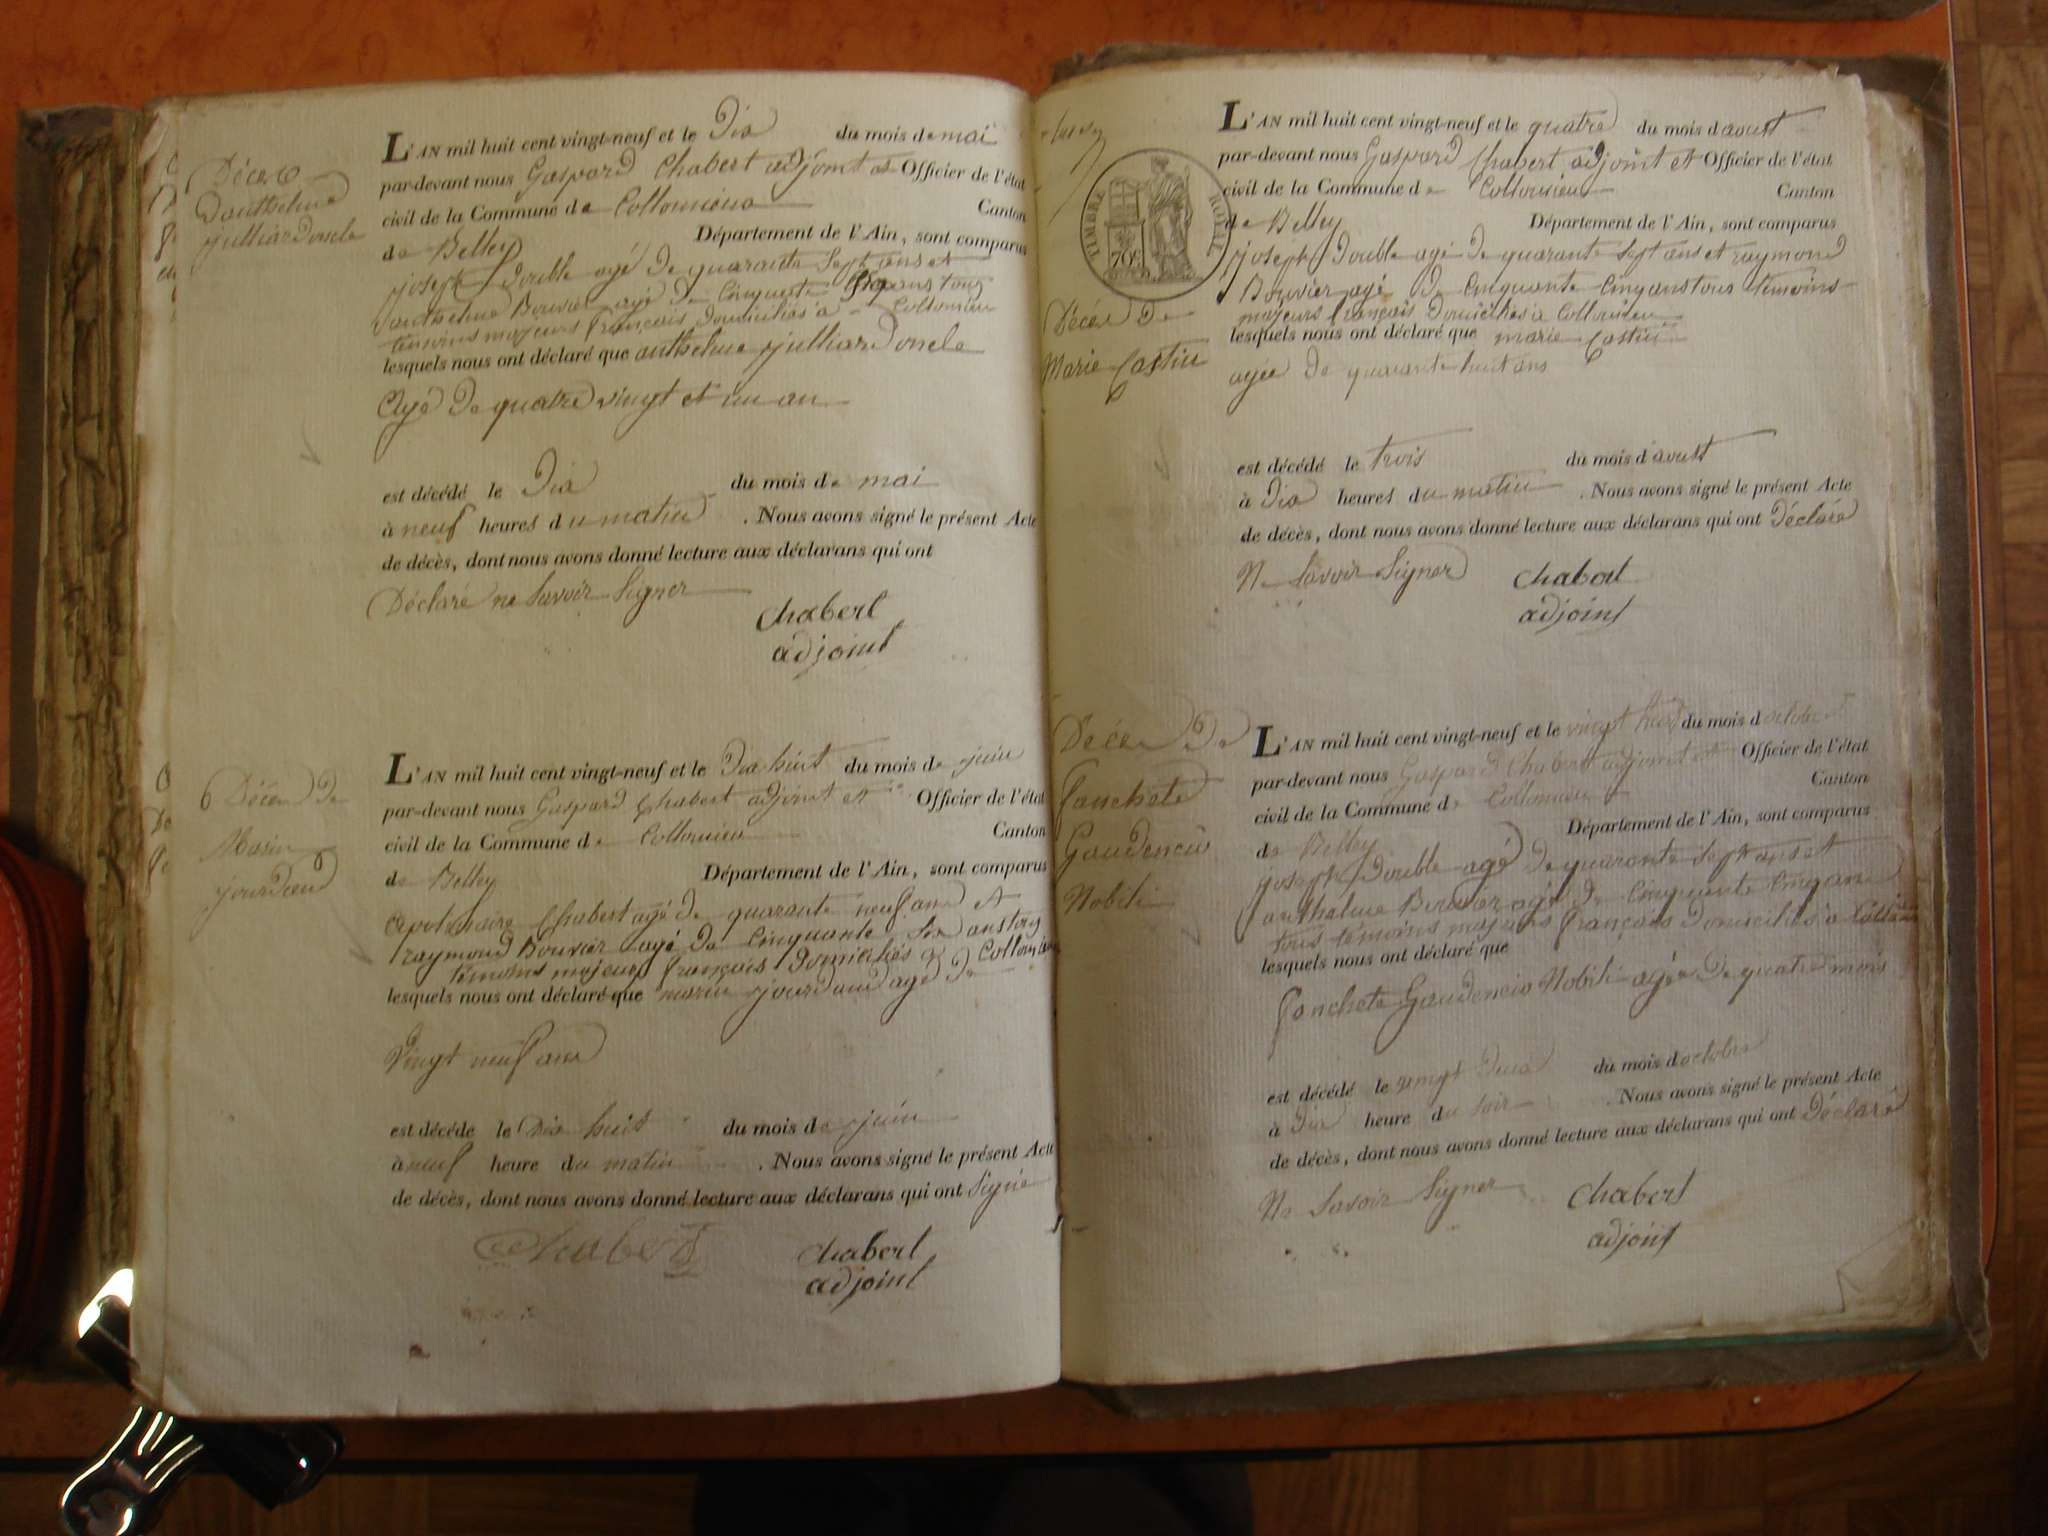 Décès
Danthelme
julliard oncle
L'AN mil huit cent vingt-neuf et le Dix du mois de mai
par-devant nous Gaspard Chabert adjoint et Officier de l'état
civil de la Commune de Collomieux Canton
de Belley Département de l'Ain, sont comparus
joseph Double agé De quarante Sept ans et
anthelme Bouvier agé De Cinquante ans tous
témoins majeurs français Domiciliés à Collomieu
lesquels nous ont déclaré que anthelme julliard oncle
Agé De quatre vingt et un an
est décédé le Dix du mois de mai
à neuf heures du matin . Nous avons signé le présent Acte
de décès, dont nous avons donné lecture aux déclarans qui ont
Déclaré ne Savoir Signer
Chabert
adjoint
6 Décès De
Marin
jourdan
L'AN mil huit cent vingt-neuf et le Dix huit du mois de juin
par-devant nous Gaspard Chabert adjoint et Officier de l'état
civil de la Commune de Collomieu Canton
de Belley Département de l'Ain, sont comparus
Apolinaire Chabert agé De quarante neuf ans et
raymond Bouvier agé De Cinquante Six ans tous
témoins majeurs français Domiciliés à Collomieu
lesquels nous ont déclaré que marin jourdan agé De
Vingt neuf ans
est décédé le Dix huit du mois de juin
à neuf heure du matin . Nous avons signé le présent Acte
de décès, dont nous avons donné lecture aux déclarans qui ont Signé
Chabert
Chabert
adjoint
TIMBRE ROYAL
70c
Décès De
Marie Castin
L'AN mil huit cent vingt-neuf et le quatre du mois d'avust
par-devant nous Gaspard Chabert adjoint et Officier de l'état
civil de la Commune de Collomieu Canton
de Belley Département de l'Ain, sont comparus
joseph Double agé De quarante Sept ans et raymond
Bouvier agé De Cinquante Cinq ans tous témoins
majeurs français Domiciliés à Collomieu
lesquels nous ont déclaré que marie Castin
agée De quarante huit ans
est décédé le trois du mois d'avust
à Dix heures du matin . Nous avons signé le présent Acte
de décès, dont nous avons donné lecture aux déclarans qui ont Déclaré
Ne Savoir Signer
Chabert
adjoint
Décès De
Fanchete
Gaudencio
Nobili
L'AN mil huit cent vingt-neuf et le vingt du mois d'octobre
par-devant nous Gaspard Chabert adjoint et Officier de l'état
civil de la Commune de Collomieu Canton
de Belley Département de l'Ain, sont comparus
joseph Double agé De quarante Sept ans et
anthelme Bouvier agé De Cinquante Cinq ans
tous témoins majeurs français Domiciliés à
lesquels nous ont déclaré que
Fanchete Gaudencio Nobili agée De quatre mois
est décédé le vingt Deux du mois d'octobre
à Dix heure du soir . Nous avons signé le présent Acte
de décès, dont nous avons donné lecture aux déclarans qui ont Déclaré
Ne Savoir Signer
Chabert
adjoint